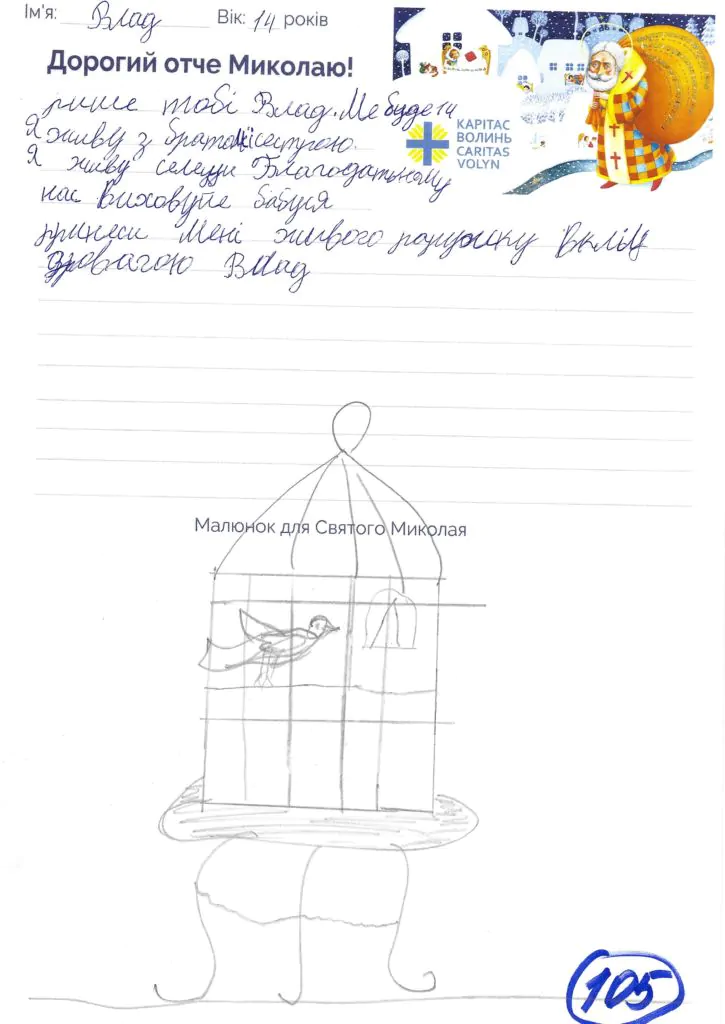 Ім'я: Влад Вік: 14 років
Дорогий отче Миколаю!
КАРІТАС
ВОЛИНЬ
CARITAS
VOLYN
пише тобі Влад. Ме буде 14
Я живу з братом і сестрою.
Я живу селещи Благодатьному
нас виховуйе бабуся
принеси мені живого папужку
Влад
Малюнок для Святого Миколая
105